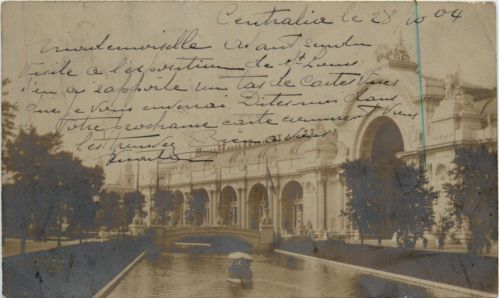 Centralia le 28 10 04
Mademoiselle ayant rendu
visite a l'exposition de St Louis
j'en ai rapporté un tas de cartes vues
que je vous enverrai Dites-moi dans
votre prochaine carte comment vous
les trouvez Bien a vous